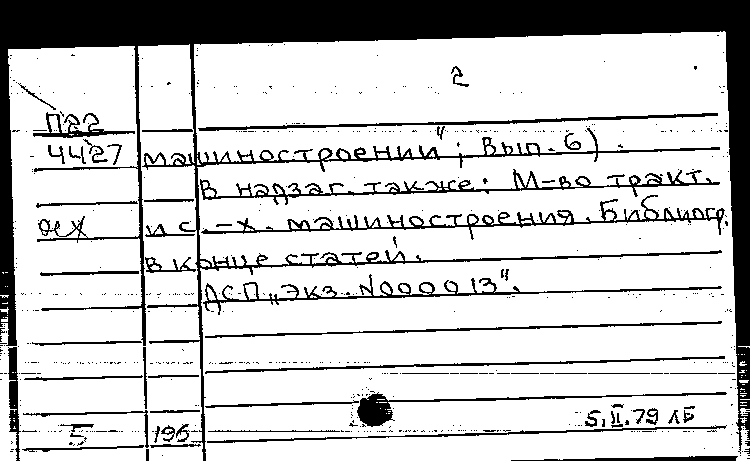 2
П22
4427 машиностроении"; Вып. 6).
В надзаг. также: М-во тракт.
и с.-х. машиностроения. Библиогр.
в конце статей.
ДСП „Экз. N000013".
5 196 5.II.79 ЛБ